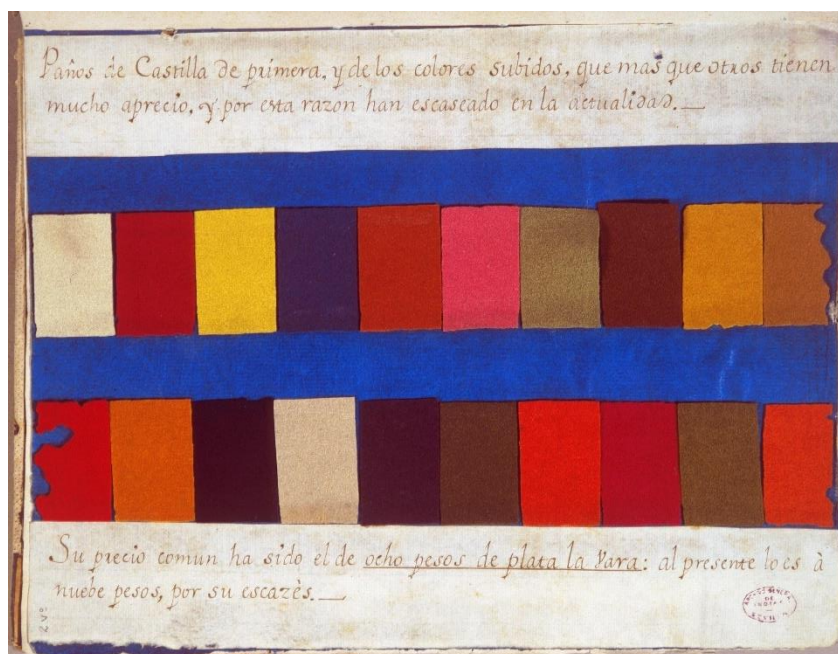 Paños de Castilla de primera, y de los colores subidos, que mas que otros tienen
mucho aprecio, y por esta razon han escaseado en la actualidad.
Su precio comun ha sido el de ocho pesos de plata la vara: al presente lo es à
nuebe pesos, por su escazès.
ARCHIVO GENERAL
DE
INDIAS